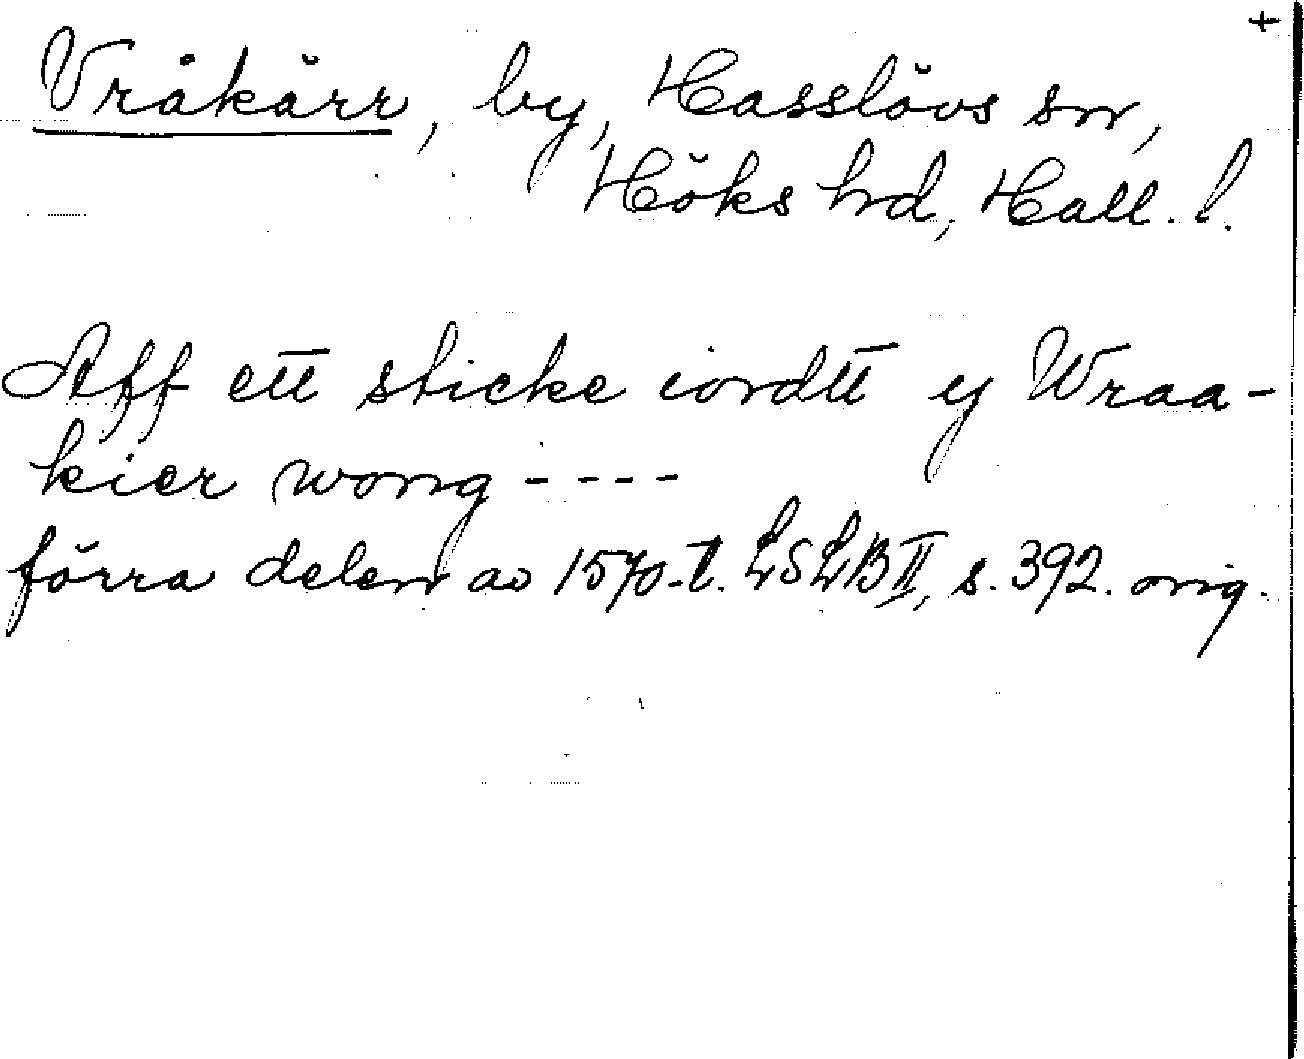 +
Vråkärr, by, Hasslövs sn,
Höks hd, Hall. l.
Aff ett sticke iordtt y Wraa-
kier wong - - - -
förra delen av 1570-t. LSLB II, s. 392. orig.